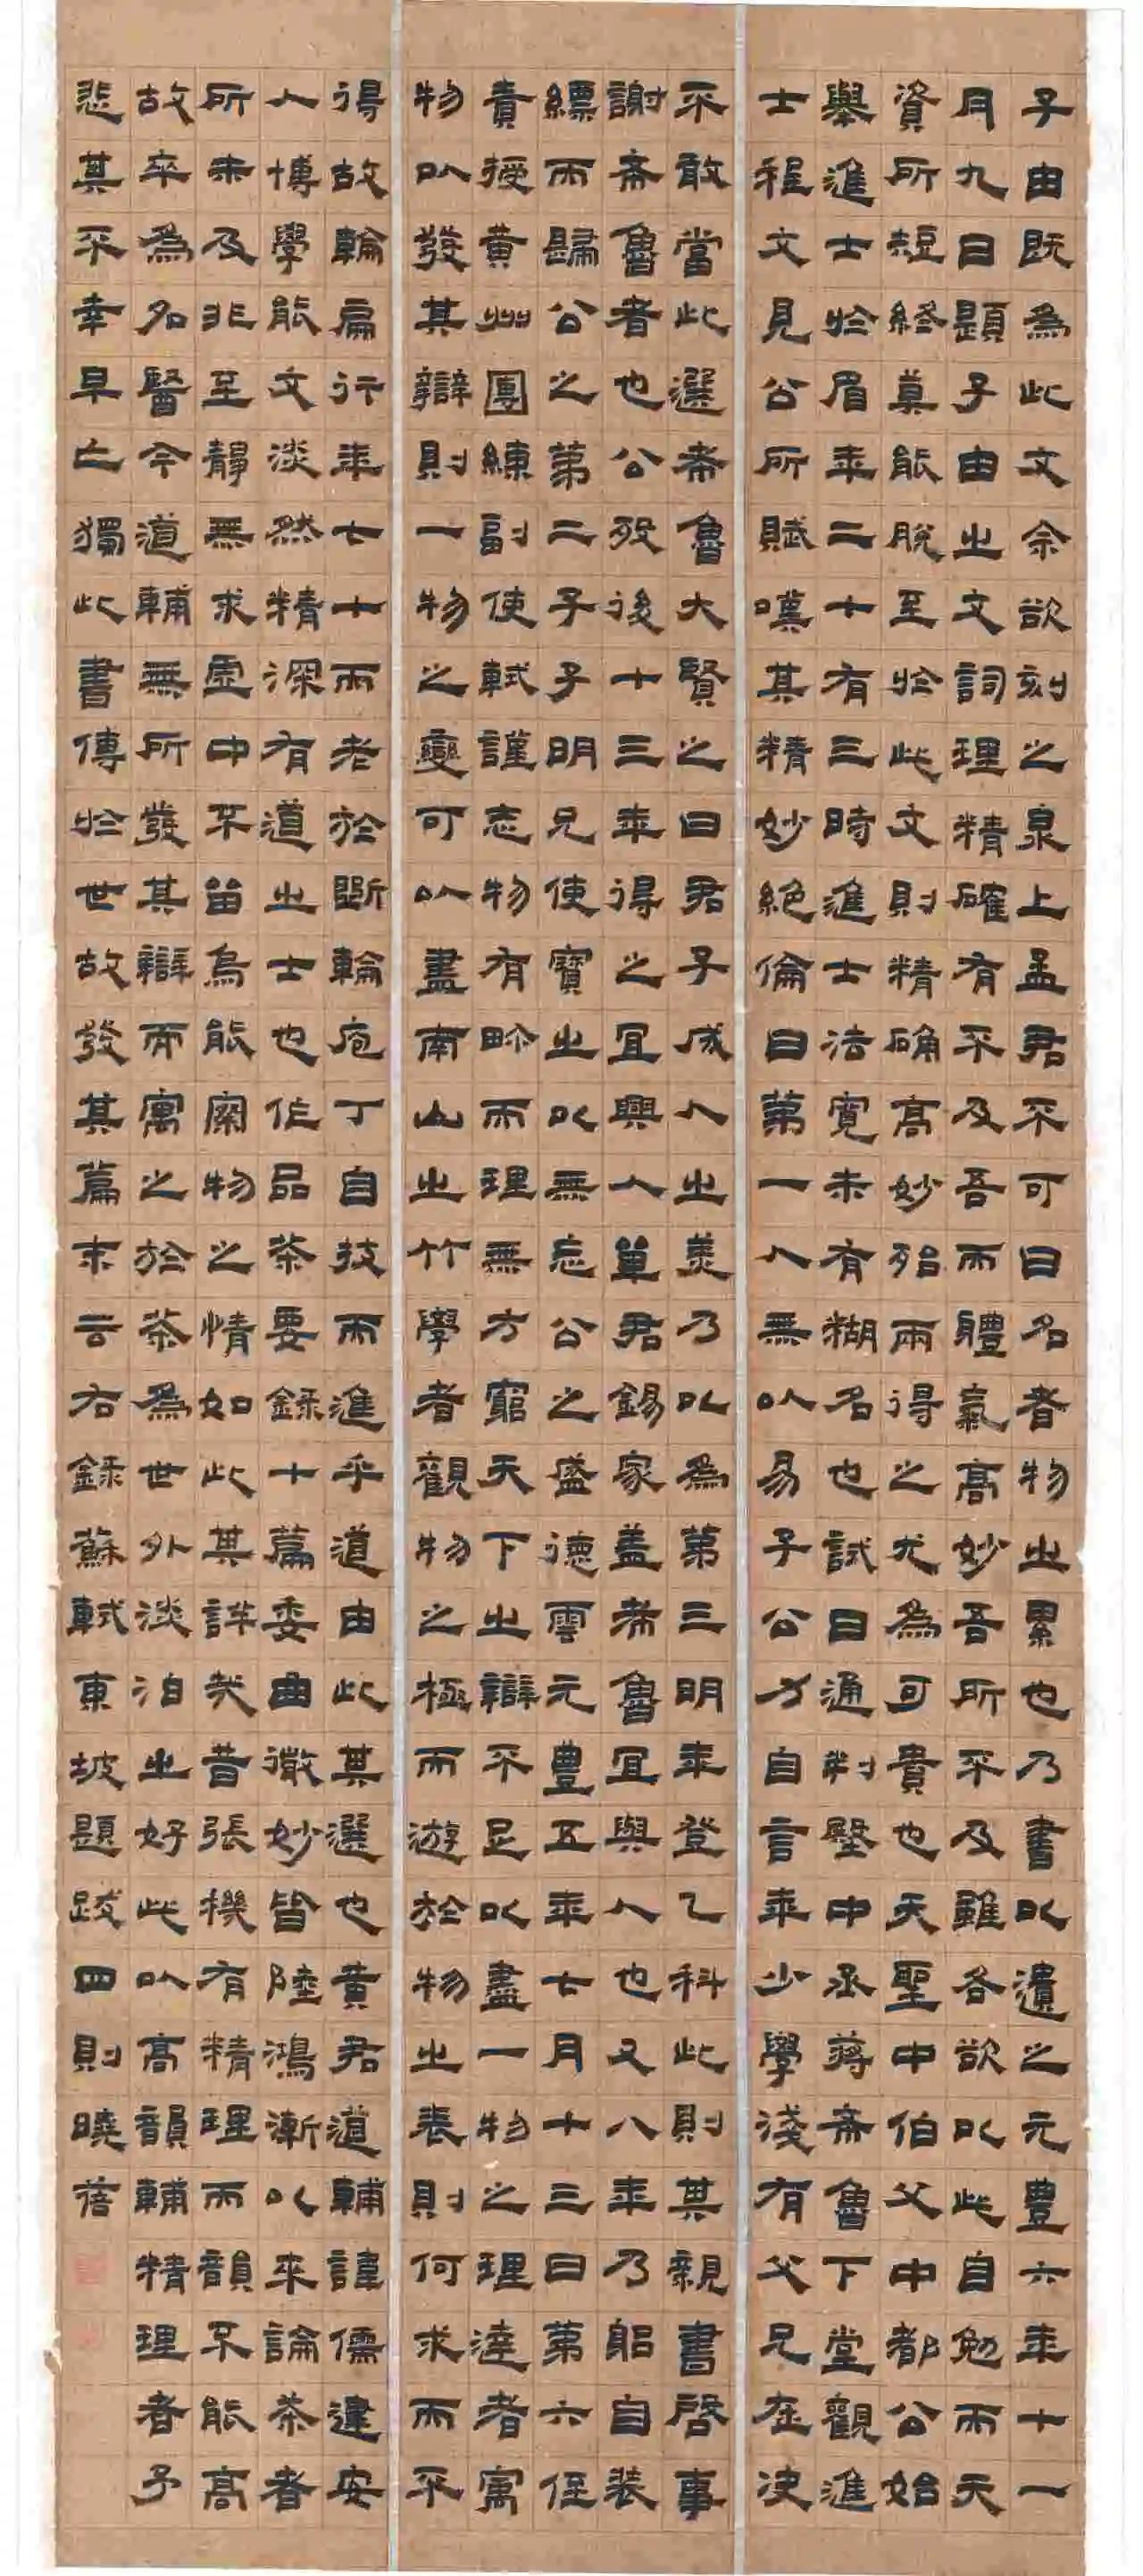 子由既為此文余欲刻之泉上孟君不可曰名者物之累也乃書以遺之元豊六年十一
月九日題子由之文詞理精確有不及吾而體氣高妙吾所不及雖各欲以此自勉而天
資所短終莫能脫至於此文則精确高妙殆兩得之尤為可貴也天聖中伯父中都公始
舉進士於眉年二十有三時進士法寬未有糊名也試日通判殿中丞蔣希魯下堂觀進
士程文見公所賦嘆其精妙絶倫曰第一人無以易子公力自言年少學淺有父兄在决
不敢當此選希魯大賢之曰君子成人之美乃以為第三明年登乙科此則其親書啓事
謝希魯者也公歿後十三年得之宜興人單君錫家盖希魯宜興人也又八年乃躬自装
縹而歸公之第二子子明兄使寶之以無忘公之盛德雲元豊五年七月十三日第六侄
責授黄州團練副使軾謹志物有畛而理無方窮天下之辯不足以盡一物之理達者寓
物以發其辯則一物之變可以盡南山之竹學者觀物之極而遊於物之表則何求而不
得故輪扁行年七十而老於斲輪庖丁自技而進乎道由此其選也黄君道輔諱儒建安
人博學能文淡然精深有道之士也作品茶要録十篇委曲微妙皆陸鴻漸以來論茶者
所未及非至靜無求虛中不留烏能察物之情如此其詳哉昔張機有精理而韻不能高
故卒為名醫今道輔無所發其辯而寓之於茶為世外淡泊之好此以高韻輔精理者予
悲其不幸早亡獨此書傳於世故發其篇末云右録蘇軾東坡題跋四則曉蓓